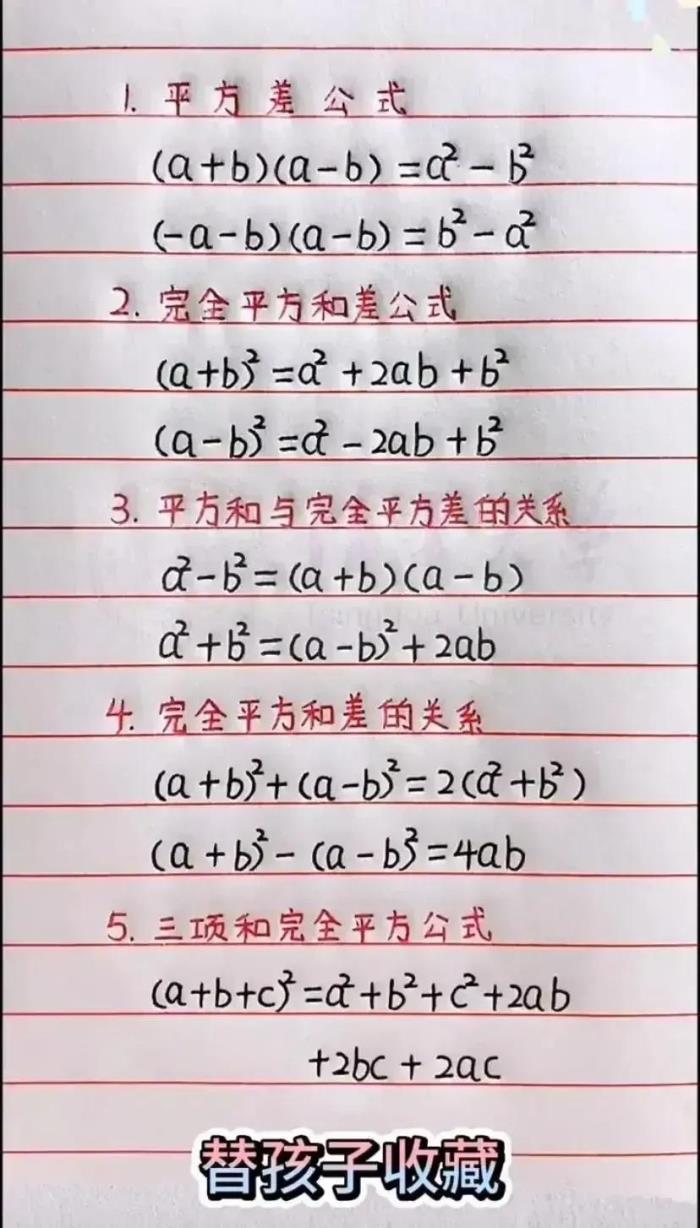 1. 平方差公式
(a+b)(a-b)=a²-b²
(-a-b)(a-b)=b²-a²
2. 完全平方和差公式
(a+b)²=a²+2ab+b²
(a-b)²=a²-2ab+b²
3. 平方和与完全平方差的关系
a²-b²=(a+b)(a-b)
a²+b²=(a-b)²+2ab
4. 完全平方和差的关系
(a+b)²+(a-b)²=2(a²+b²)
(a+b)²-(a-b)²=4ab
5. 三项和完全平方公式
(a+b+c)²=a²+b²+c²+2ab
+2bc+2ac
替孩子收藏